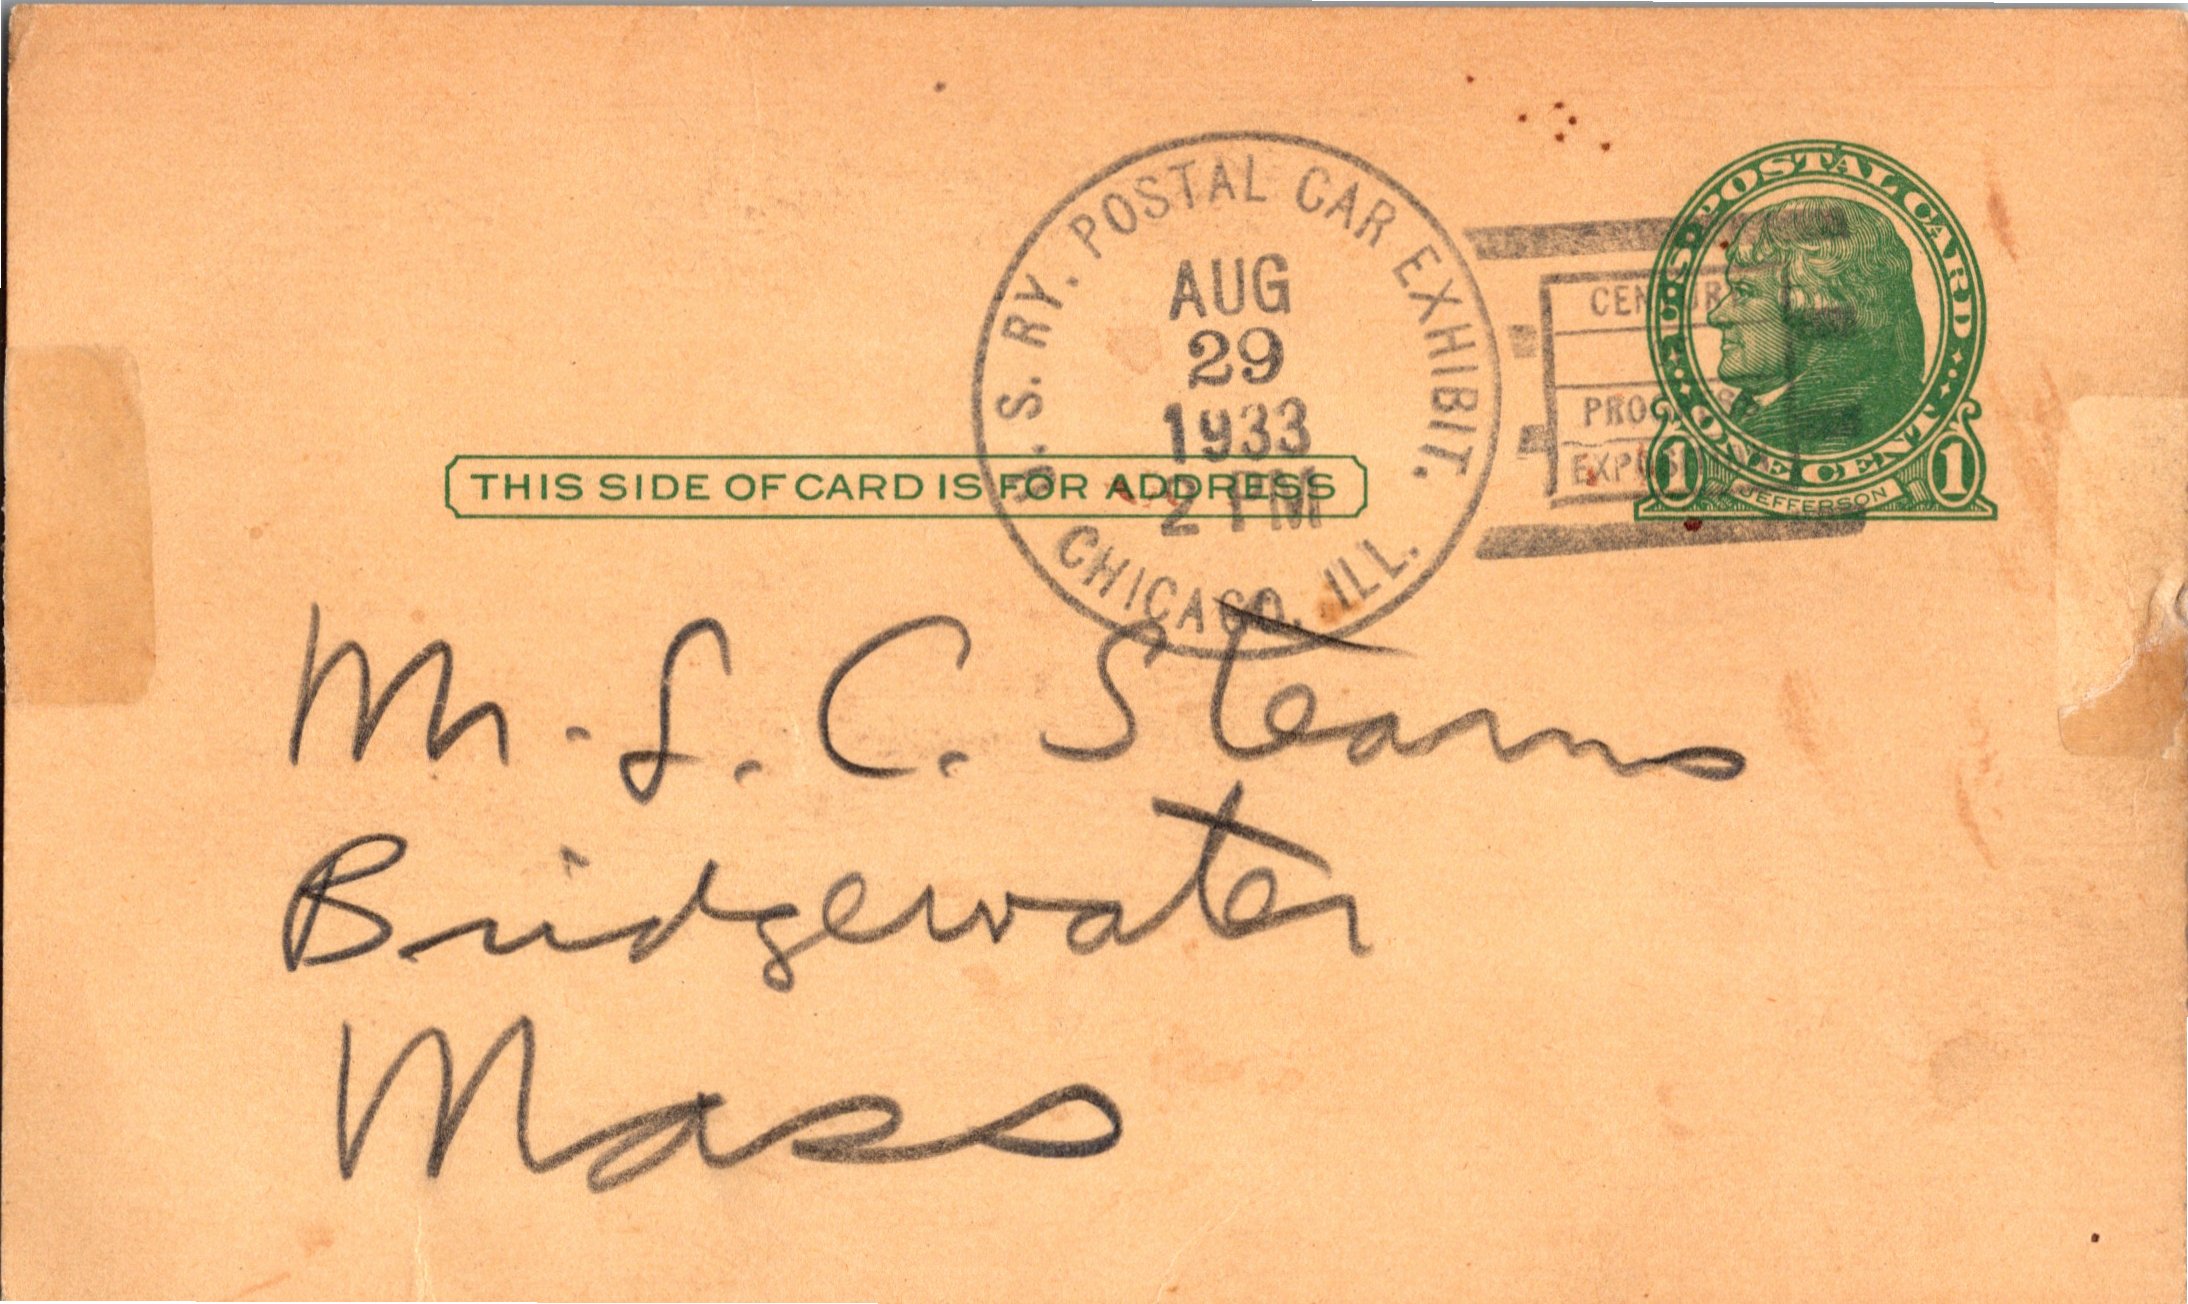 U.S. RY. POSTAL CAR EXHIBIT.
AUG
29
1933
2 PM
CHICAGO, ILL.
CENTURY
PROGRESS
EXPOSITION
U·S·POSTAL CARD
ONE CENT
1 1
JEFFERSON
THIS SIDE OF CARD IS FOR ADDRESS
M. L. C. Stearns
Bridgewater
Mass